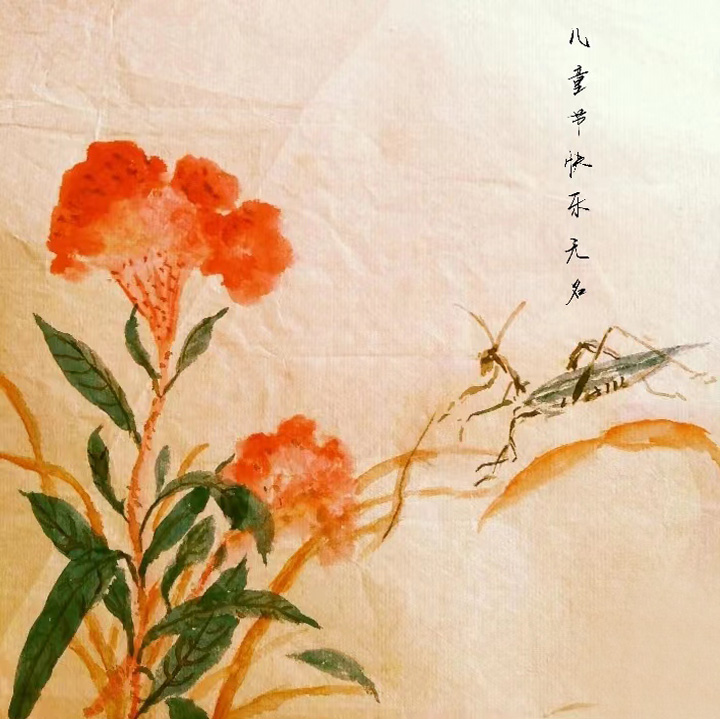 儿童节快乐无名